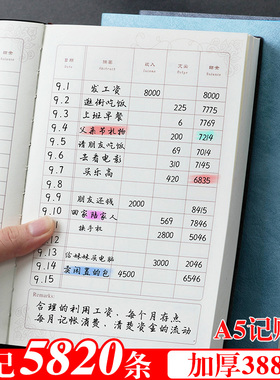 日期 摘要 收入 支出 结余
Date Abstract Income Outgo Balance
9.1 发工资 8000 8000
9.2 逛街吃饭 225 7775
9.3 上班早餐 6 7769
9.4 父亲节礼物 555 7214
9.5 请朋友吃饭 69 7145
9.6 去看电影 310
9.7 买乐高 420 6835
9.8
9.9 朋友还钱 2000 8415
9.10 回家陪家人 569 7846
9.11 换手机
9.12
9.13 给妹妹买电脑 3000 2046
9.14 卖闲置的包 4500 6546
9.15
Remarks:
合理的利用工资,每个月存点
每月记帐消费,清楚资金的流动
A5记
记5820条
加厚388